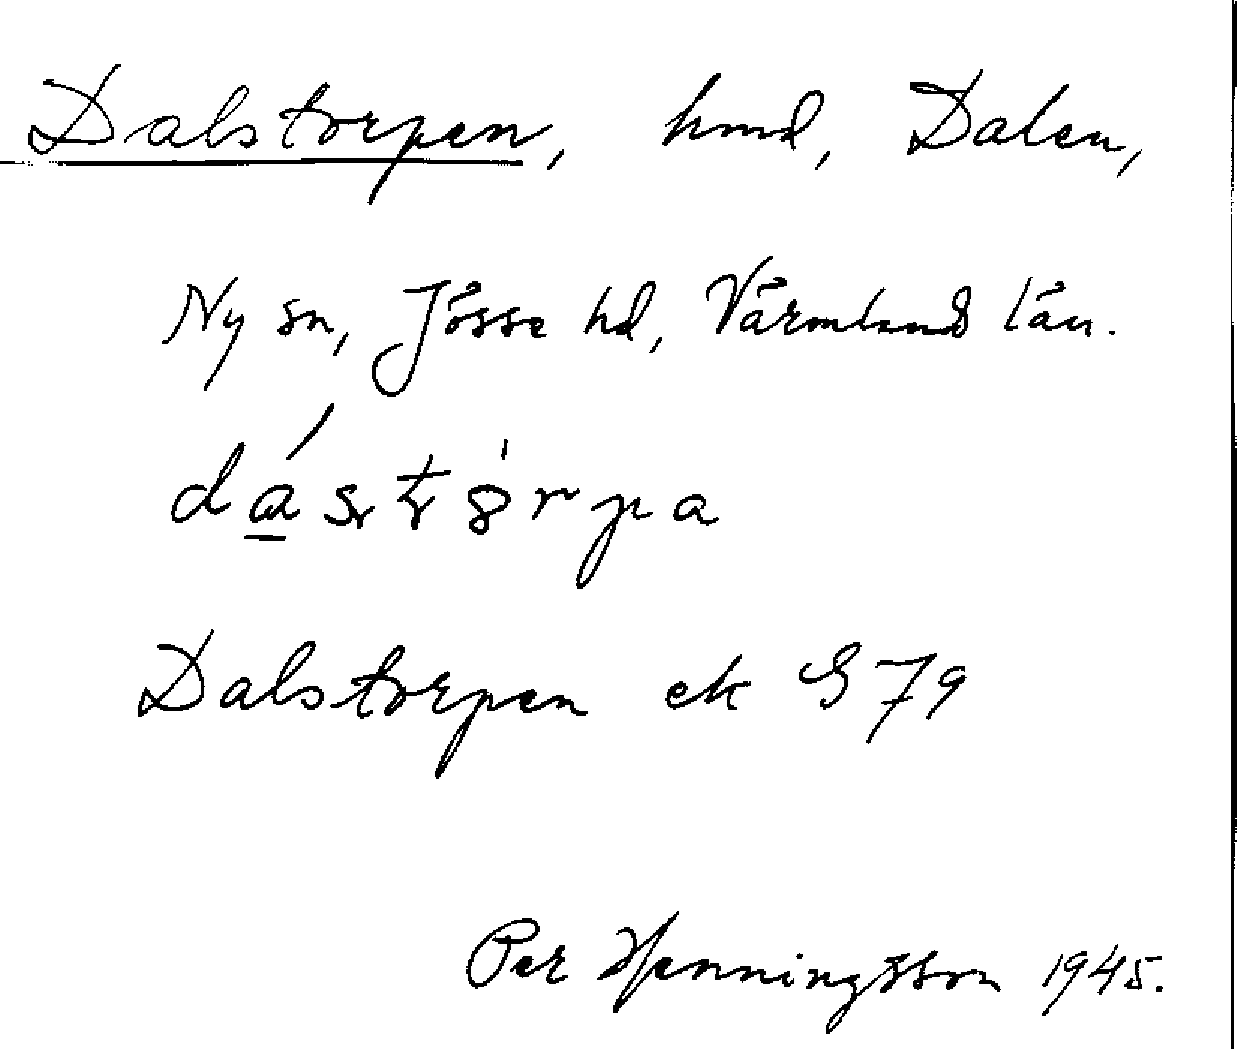 Dalstorpen, hmd, Dalen,
Ny sn, Jösse hd, Värmlands län.
dástörpa
Dalstorpen ek S79
Per Henningsson 1945.